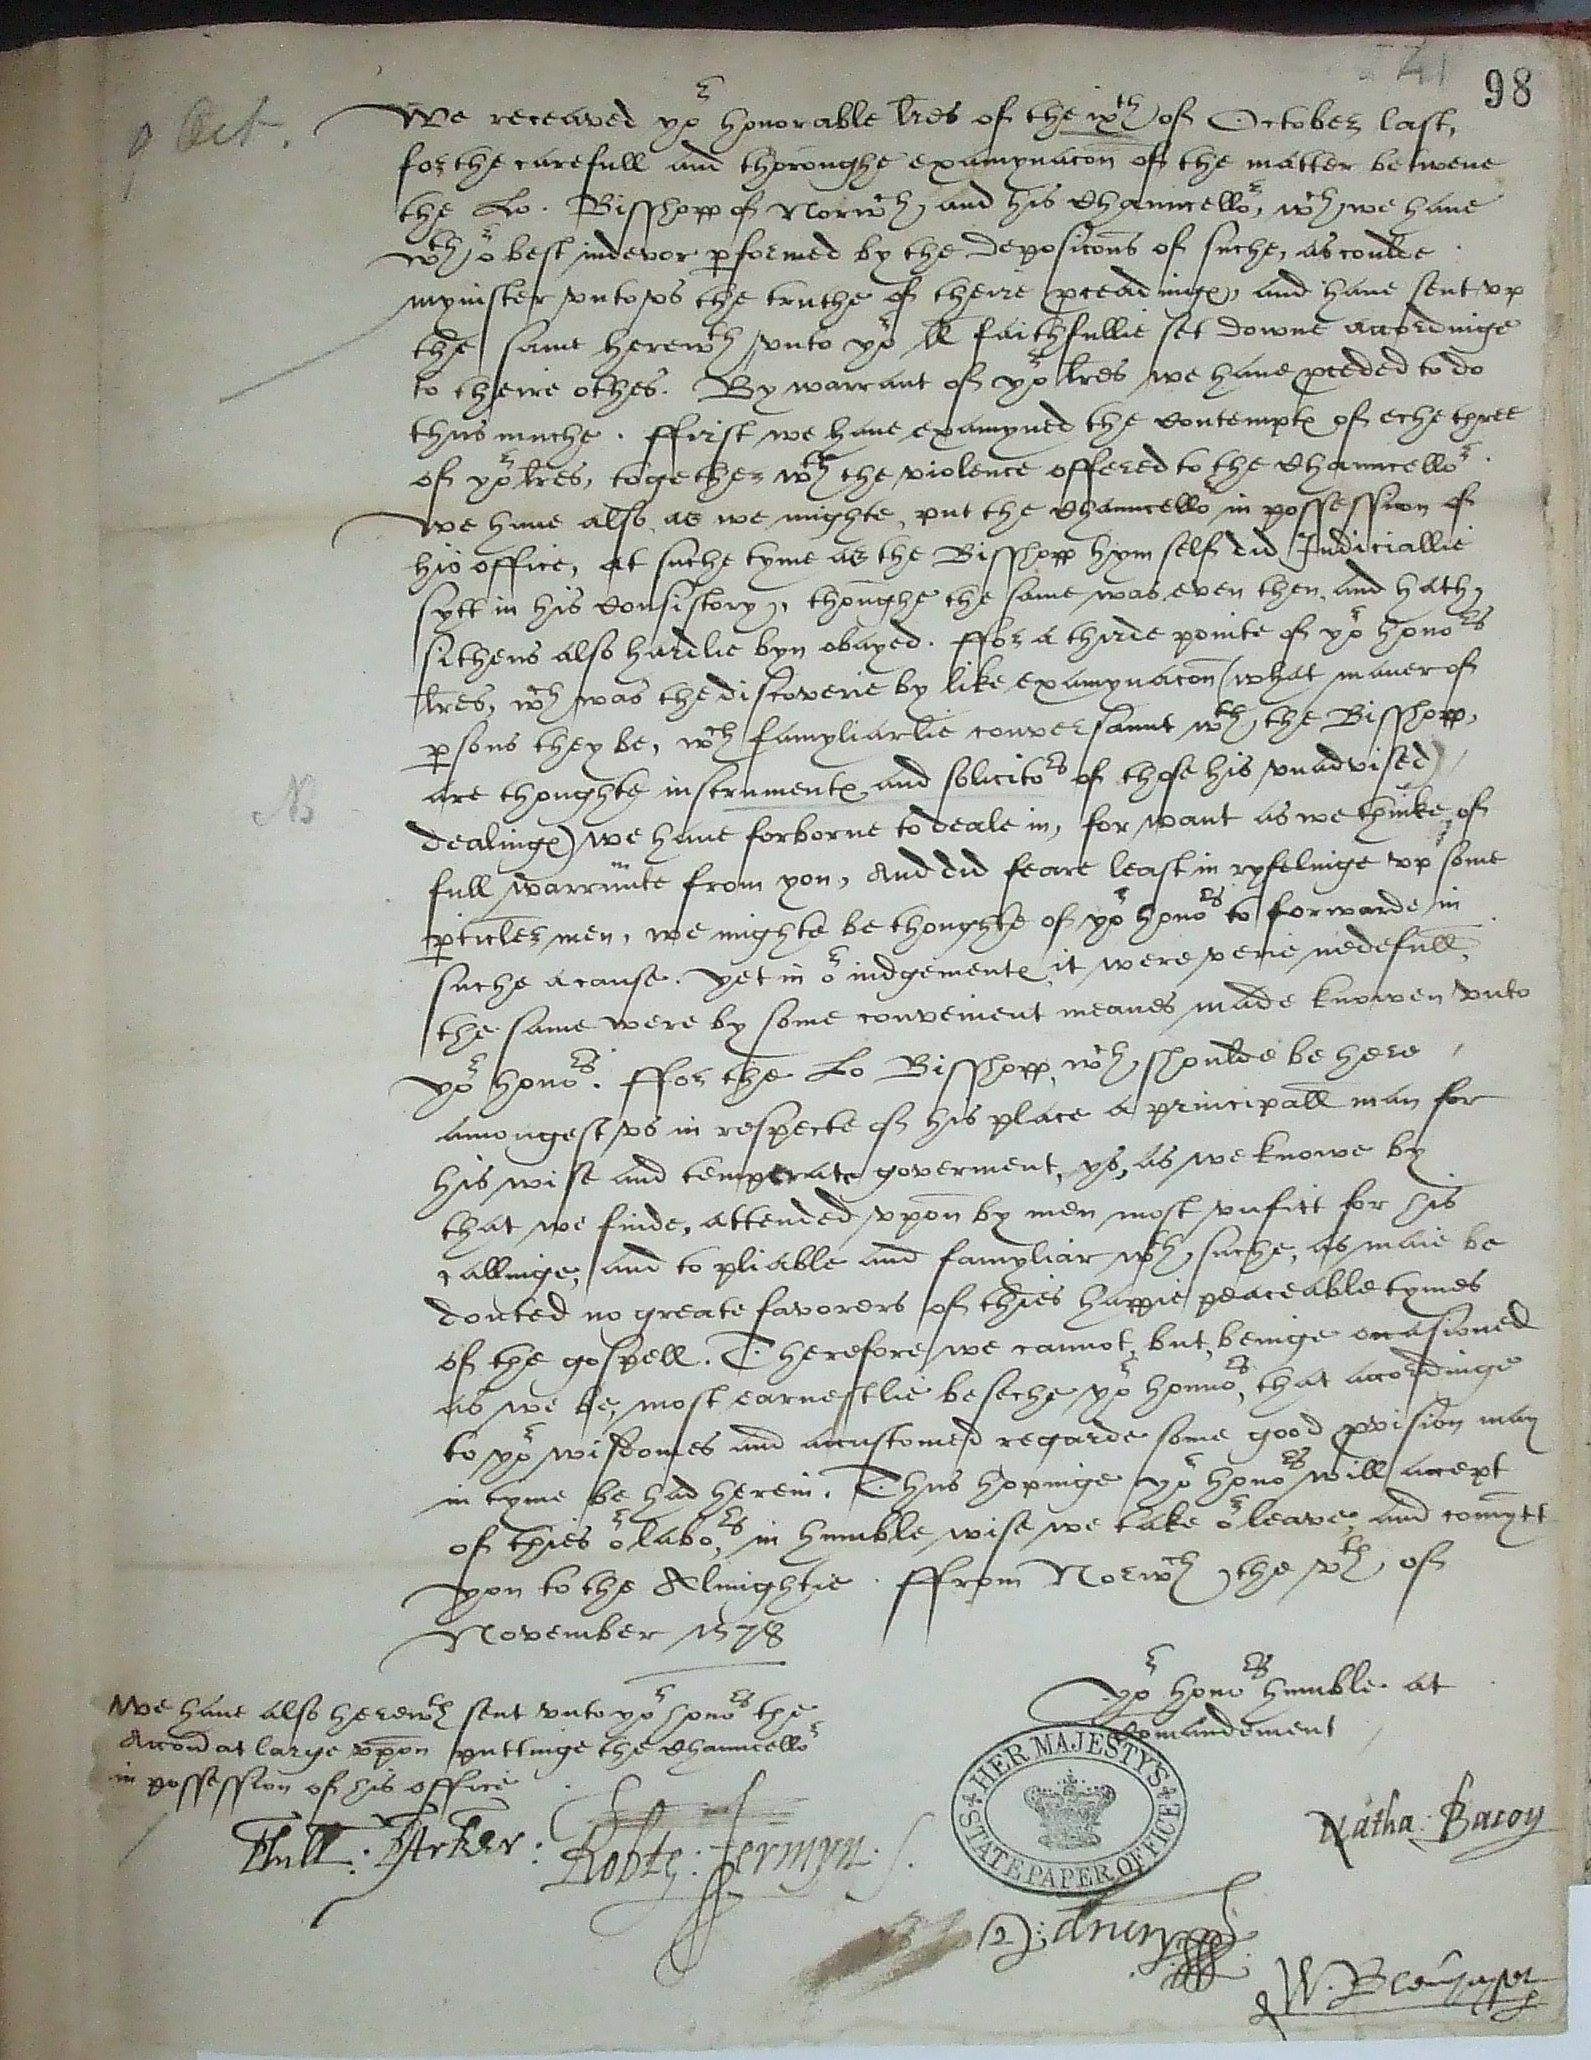 98
9 Oct.
We receaved yor honorable lres of the ixth of October last,
for the carefull and thoroughe examynacon of the matter betwene
the Lo. Bisshopp of Norwch, and his Chauncellor, wch we haue
wth or best indevor pformed by the deposicons of suche, as coulde
mynister vnto vs the truthe of theire pceadings, and haue sent vp
the same herewth vnto yor ll faithfullie set downe accordinge
to theire othes. By warrant of yor lres we haue pceded to do
thus muche. ffirst we haue examyned the Contempts of eche three
of yor lres, together wth the violence offered to the Chauncellor.
We haue also as we mighte, put the Chauncellor in possession of
his office, at suche tyme as the Bisshopp hym self did Iudiciallie
sytt in his Consistory, thoughe the same was even then, and hath
sithens also hardlie byn obayed. ffor a thirde pointe of yor honors
lres, wch was the discoverie by like examynacon (what maner of
psons they be, wch famyliarlie conversaunt wth the Bisshopp,
are thoughte instruments and solicitors of these his vnadvised
dealings) we haue forborne to deale in, for want as we thinke of
full warrante from you, And did feare least in ryfelinge vp some
pticler men, we mighte be thoughte of yor honors to forwarde in
suche a cause. Yet in or iudgements it were verie nedefull,
the same were by some convenient meanes made knowen vnto
yor honors. ffor the Lo Bisshopp, wch shoulde be here
amongest vs in respecte of his place a principall man for
his wise and temperate goverment, ys, as we knowe by
that we finde, attended vpon by men most vnfitt for his
callinge, and to pliable and famyliar wth suche, as maie be
douted no greate favorers of thies happie peaceable tymes
of the gospell. Therefore we cannot, but, beinge occasioned
as we be, most earnestlie beseche yor honnors, that accordinge
to yor wisdomes and accustomed regarde some good pvision may
in tyme be had herein. Thus hopinge yor honors will accept
of thies or labors, in humble wise we take or leave, and comytt
you to the Almightie. ffrom Norwch the vth of
November 1578
Yor honors humble at
Comandement
We haue also herewth sent vnto yor honors the
Accon at large vpon puttinge the Chauncellor
in possession of his office
HER MAJESTY'S
STATE PAPER OFFICE
Phill: Parker:
Robte: Jermyn.
Natha: Bacon
D: drury
W. Blenhayset